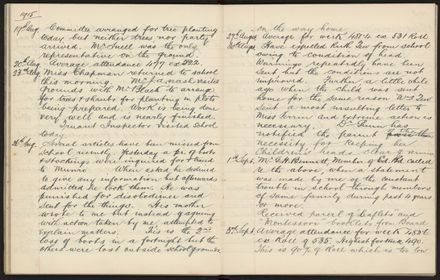 1915
17th Aug. Committee arranged for tree planting
today but neither trees nor party
arrived. Mr Snell was the only
representative on the ground.
20th Aug Average attendance 477 ex 542
23rd Aug Miss Chapman returned to school
this morning. Mr visited
grounds with Mr Black to arrange
for trees & shrubs for planting in plots
being prepared. Work is being done
very well and is nearly finished.
Truant Inspector visited School
today.
26th Aug. Several articles have been missed from
School recently. Yesterday a pr of boots
& stockings were inquired for & traced
to Munro. When asked he denied
to give any information but afterwards
admitted he took them. He was
punished for disobedience and
sent for the things. His mother
wrote to me but instead of agreeing
with action taken by me attempted to
explain matters. This is the 2nd
loss of boots in a fortnight but the
others were lost outside school grounds
on the way home.
27th Aug Average for week 481.4 ex 531 Roll
30th Aug Have expelled Ruth from school
owing to condition of head.
Warnings repeatedly have been
sent but the conditions are not
improved. Further a little while
ago when the child was sent
home for the same reason Mrs
sent a most insulting letter to
Miss and extreme action is
necessary.
notified the parent
necessity for keeping her
Children's heads clean &
1st Sept. Mr G.H. Bennett Member of Ed. Bd. called
re the above when a statement
was made by me of the constant
trouble in school through members
of same family during past 12 years
or more.
Received parcel of leaflets and
Montessori booklets from Board
3rd Sept Average attendance for week 483.4
ex Roll of 535. Highest for this 490.
This is 90% of Roll which is too low